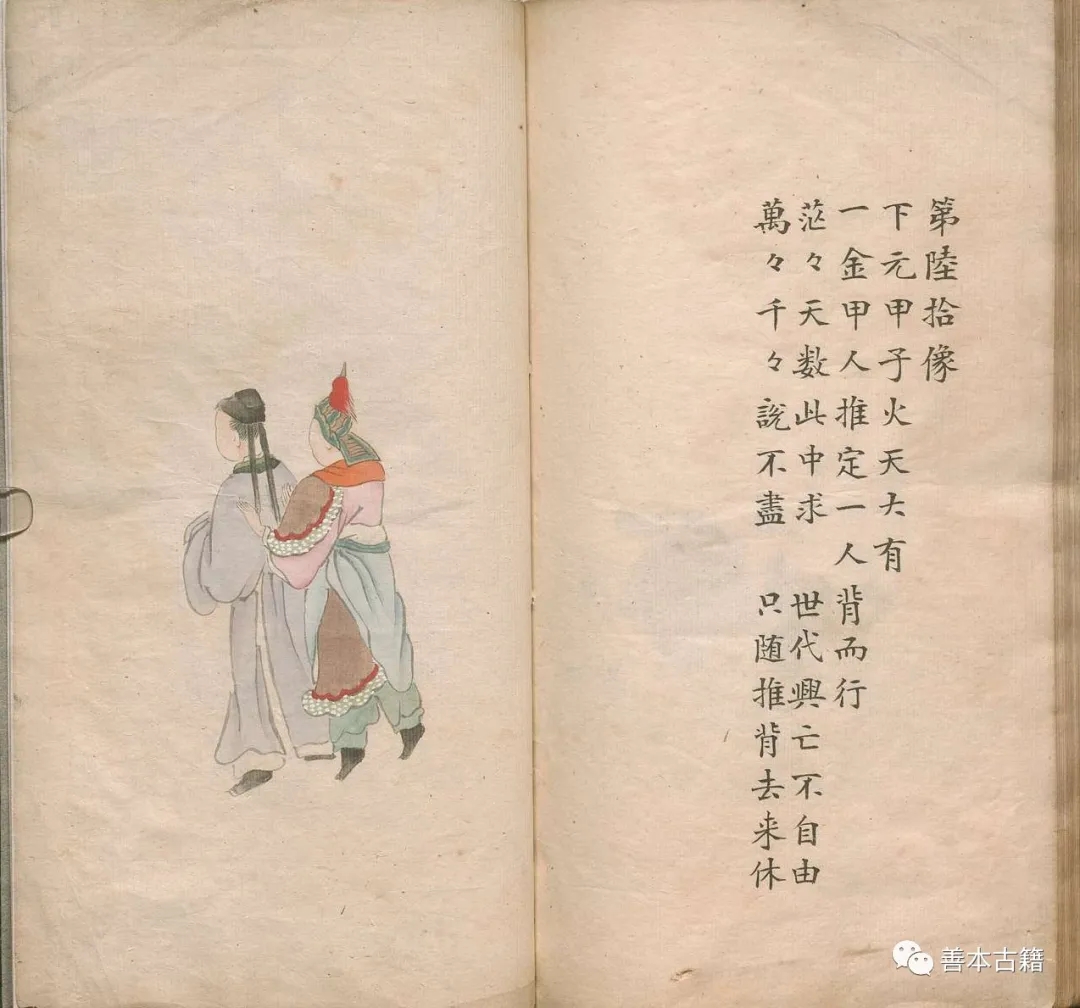 第陸拾像
下元甲子火天大有
一金甲人推定一人背而行
茫々天数此中求　世代興亡不自由
萬々千々說不盡　只随推背去来休
善本古籍